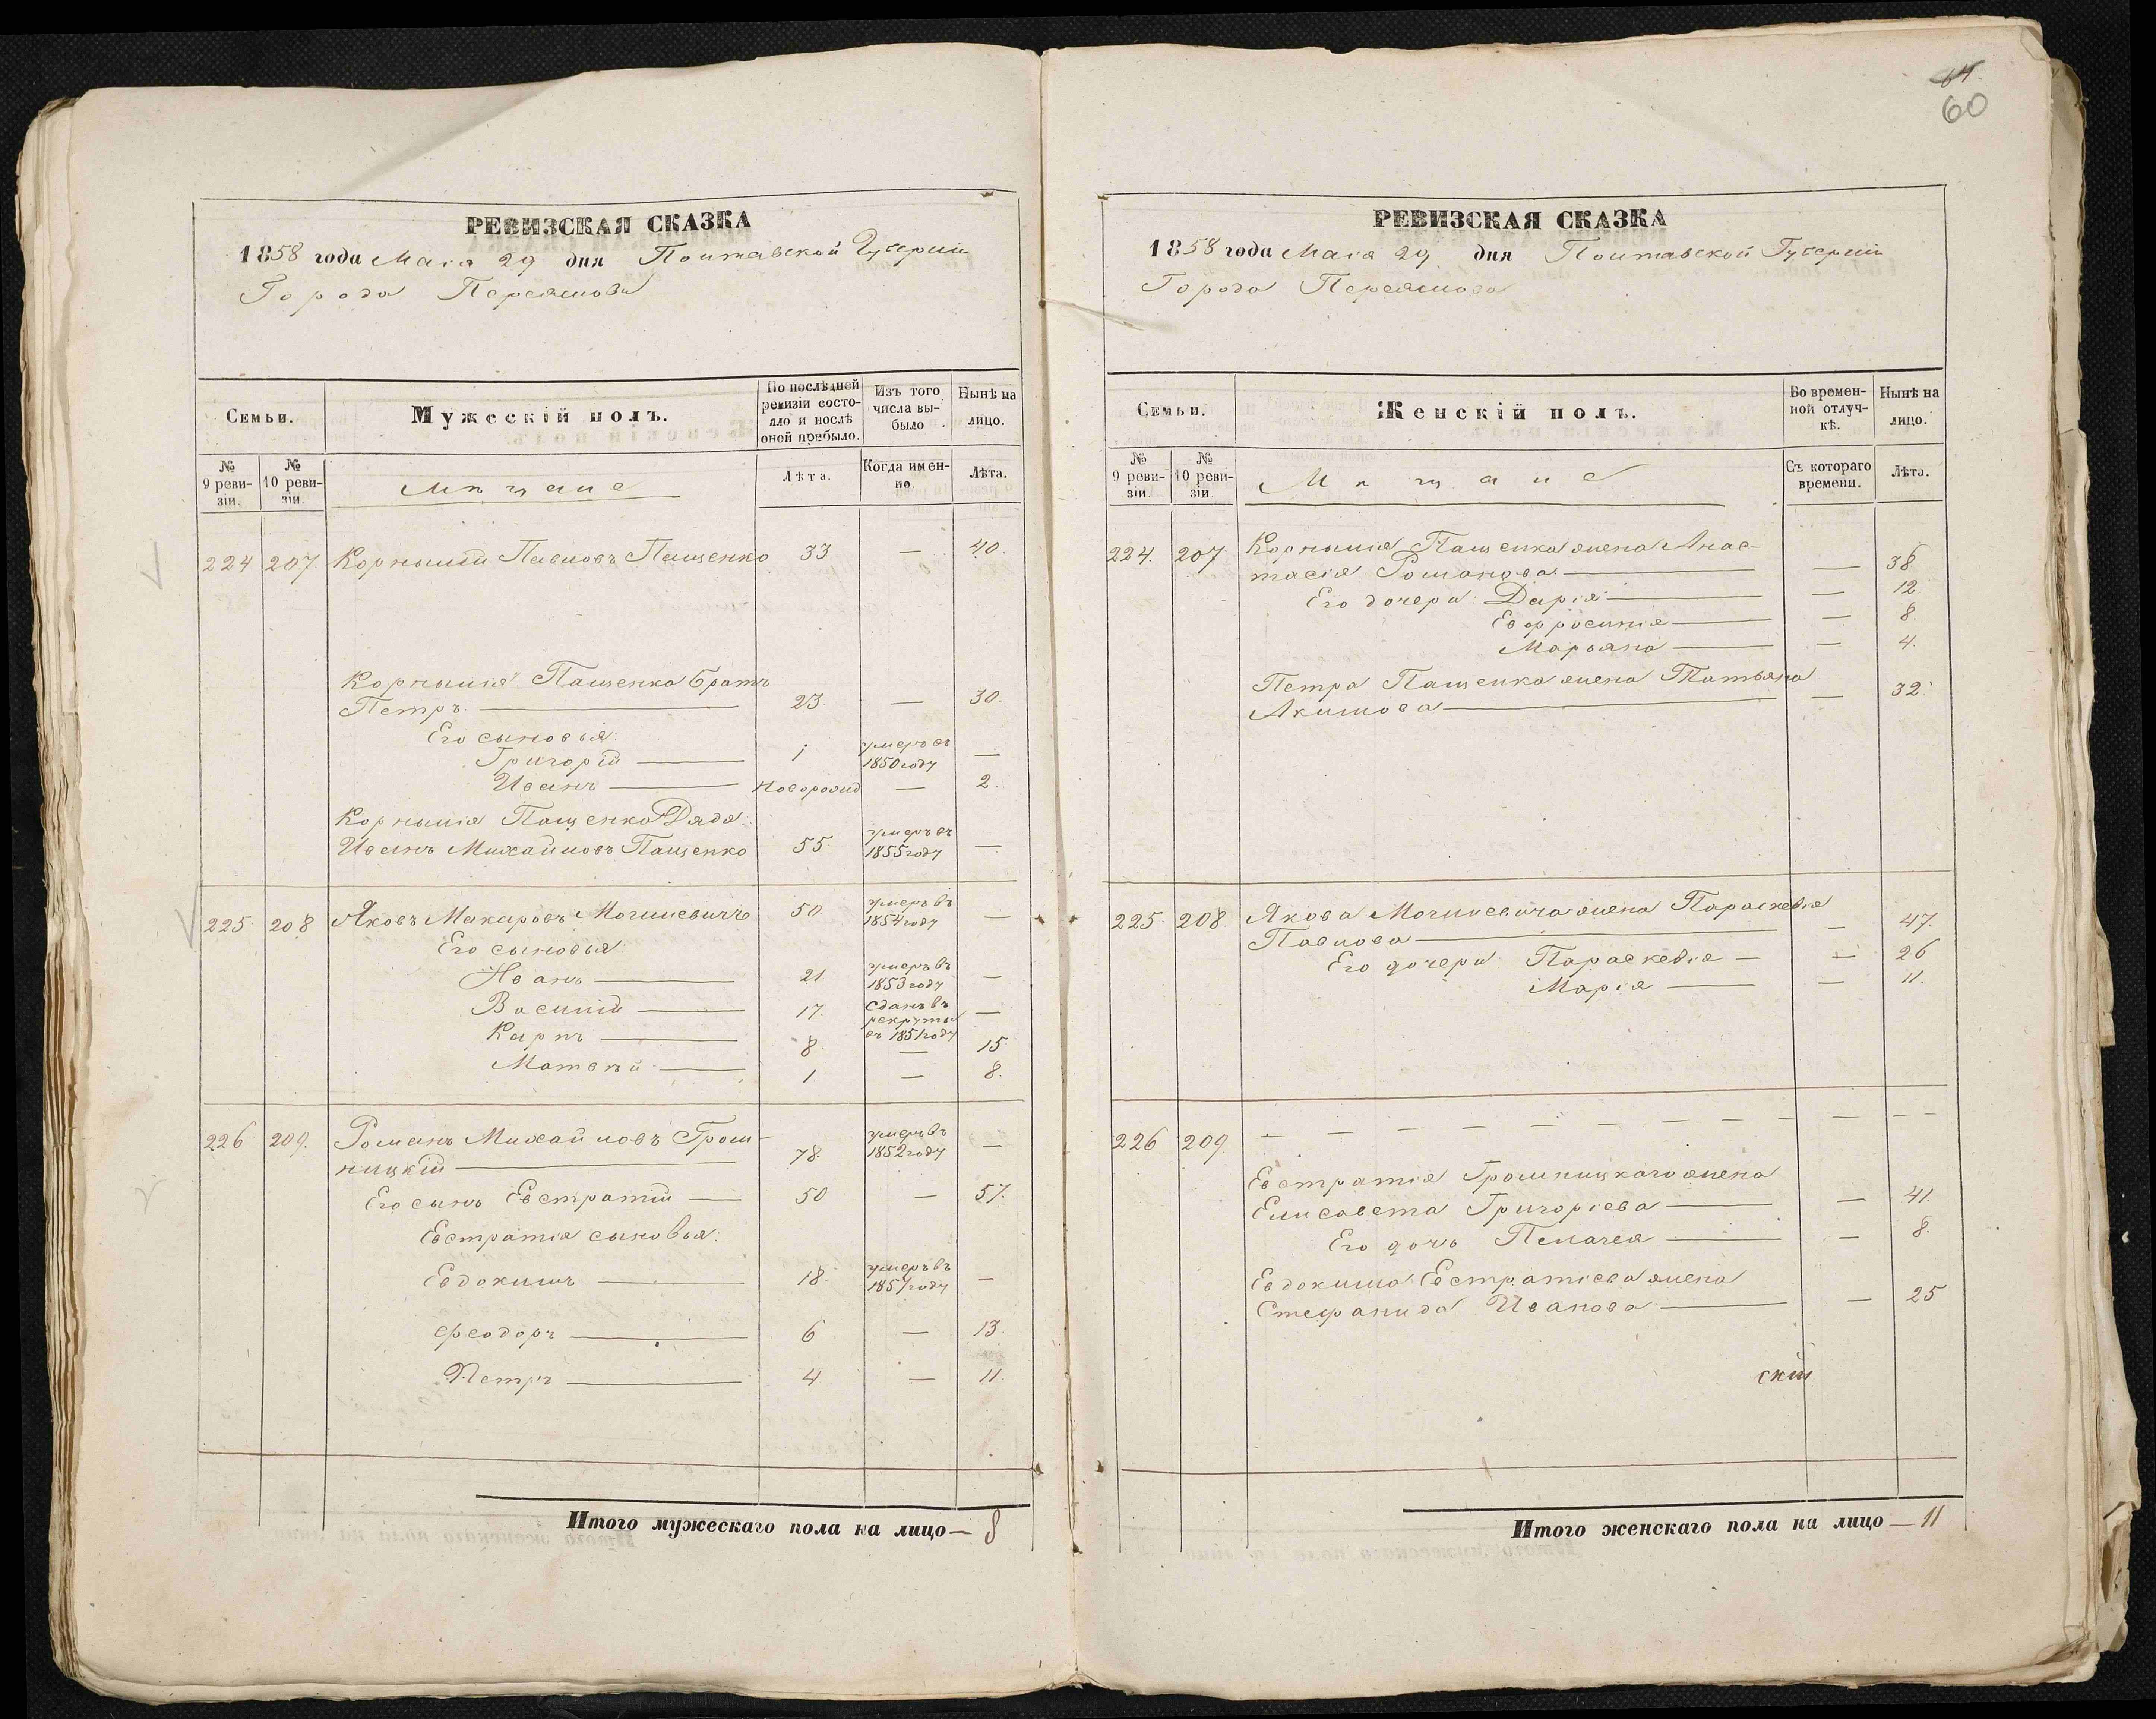 64.
60
РЕВИЗСКАЯ СКАЗКА
1858 года Мая 29 дня Полтавской Губерніи
Города Переяслова
Семьи.
Мужескій полъ.
По послѣдней ревизіи состояло и послѣ оной прибыло.
Изъ того числа выбыло
Нынѣ на лицо.
№ 9 ревизіи.
№ 10 ревизіи.
Мѣщане
Лѣта.
Когда именно.
Лѣта.
224 207. Корнилій Павловъ Пащенко 33 — 40.
Корнилія Пащенка братъ
Петръ. 23. — 30.
Его сыновья:
Григорій 1 умеръ въ 1850 году —
Иванъ новорожд — 2.
Корнилія Пащенка Дядя:
Иванъ Михайловъ Пащенко 55. умеръ въ 1855 году —
225. 208 Яковъ Макаровъ Могилевичъ 50 умеръ въ 1854 году —
Его сыновья:
Иванъ 21. умеръ въ 1853 году —
Василій 17. сданъ въ рекруты въ 1851 году —
Карпъ 8. — 15
Матвѣй 1. — 8.
226 209. Романъ Михайловъ Гром-
ницкій 78. умеръ въ 1852 году —
Его сынъ Евстратій 50 — 57.
Евстратія сыновья:
Евдокимъ 18. умеръ въ 1854 году —
Феодоръ 6 — 13.
Петръ 4 — 11.
Итого мужескаго пола на лицо — 8
РЕВИЗСКАЯ СКАЗКА
1858 года Мая 29 дня Полтавской Губерніи
Города Переяслова
Семьи.
Женскій полъ.
Во временной отлучкѣ.
Нынѣ на лицо.
№ 9 ревизіи.
№ 10 ревизіи.
Мѣщане
Съ котораго времени.
Лѣта.
224. 207 Корнилія Пащенка жена Анас-
тасія Романова — 38
Его дочери: Дарія — 12.
Евфросинія — 8.
Марьяна — 4.
Петра Пащенка жена Татьяна
Акимова — 32.
225. 208. Якова Могилевича жена Параскевія
Павлова — 47.
Его дочери: Параскевія — 26
Марія — 11.
226 209. — — — — — — — — — —
Евстратія Громницкаго жена
Елисавета Григорьева — 41.
Его дочь Пелагея — 8.
Евдокима Евстратіева жена
Стефанида Иванова — 25
скій
Итого женскаго пола на лицо — 11